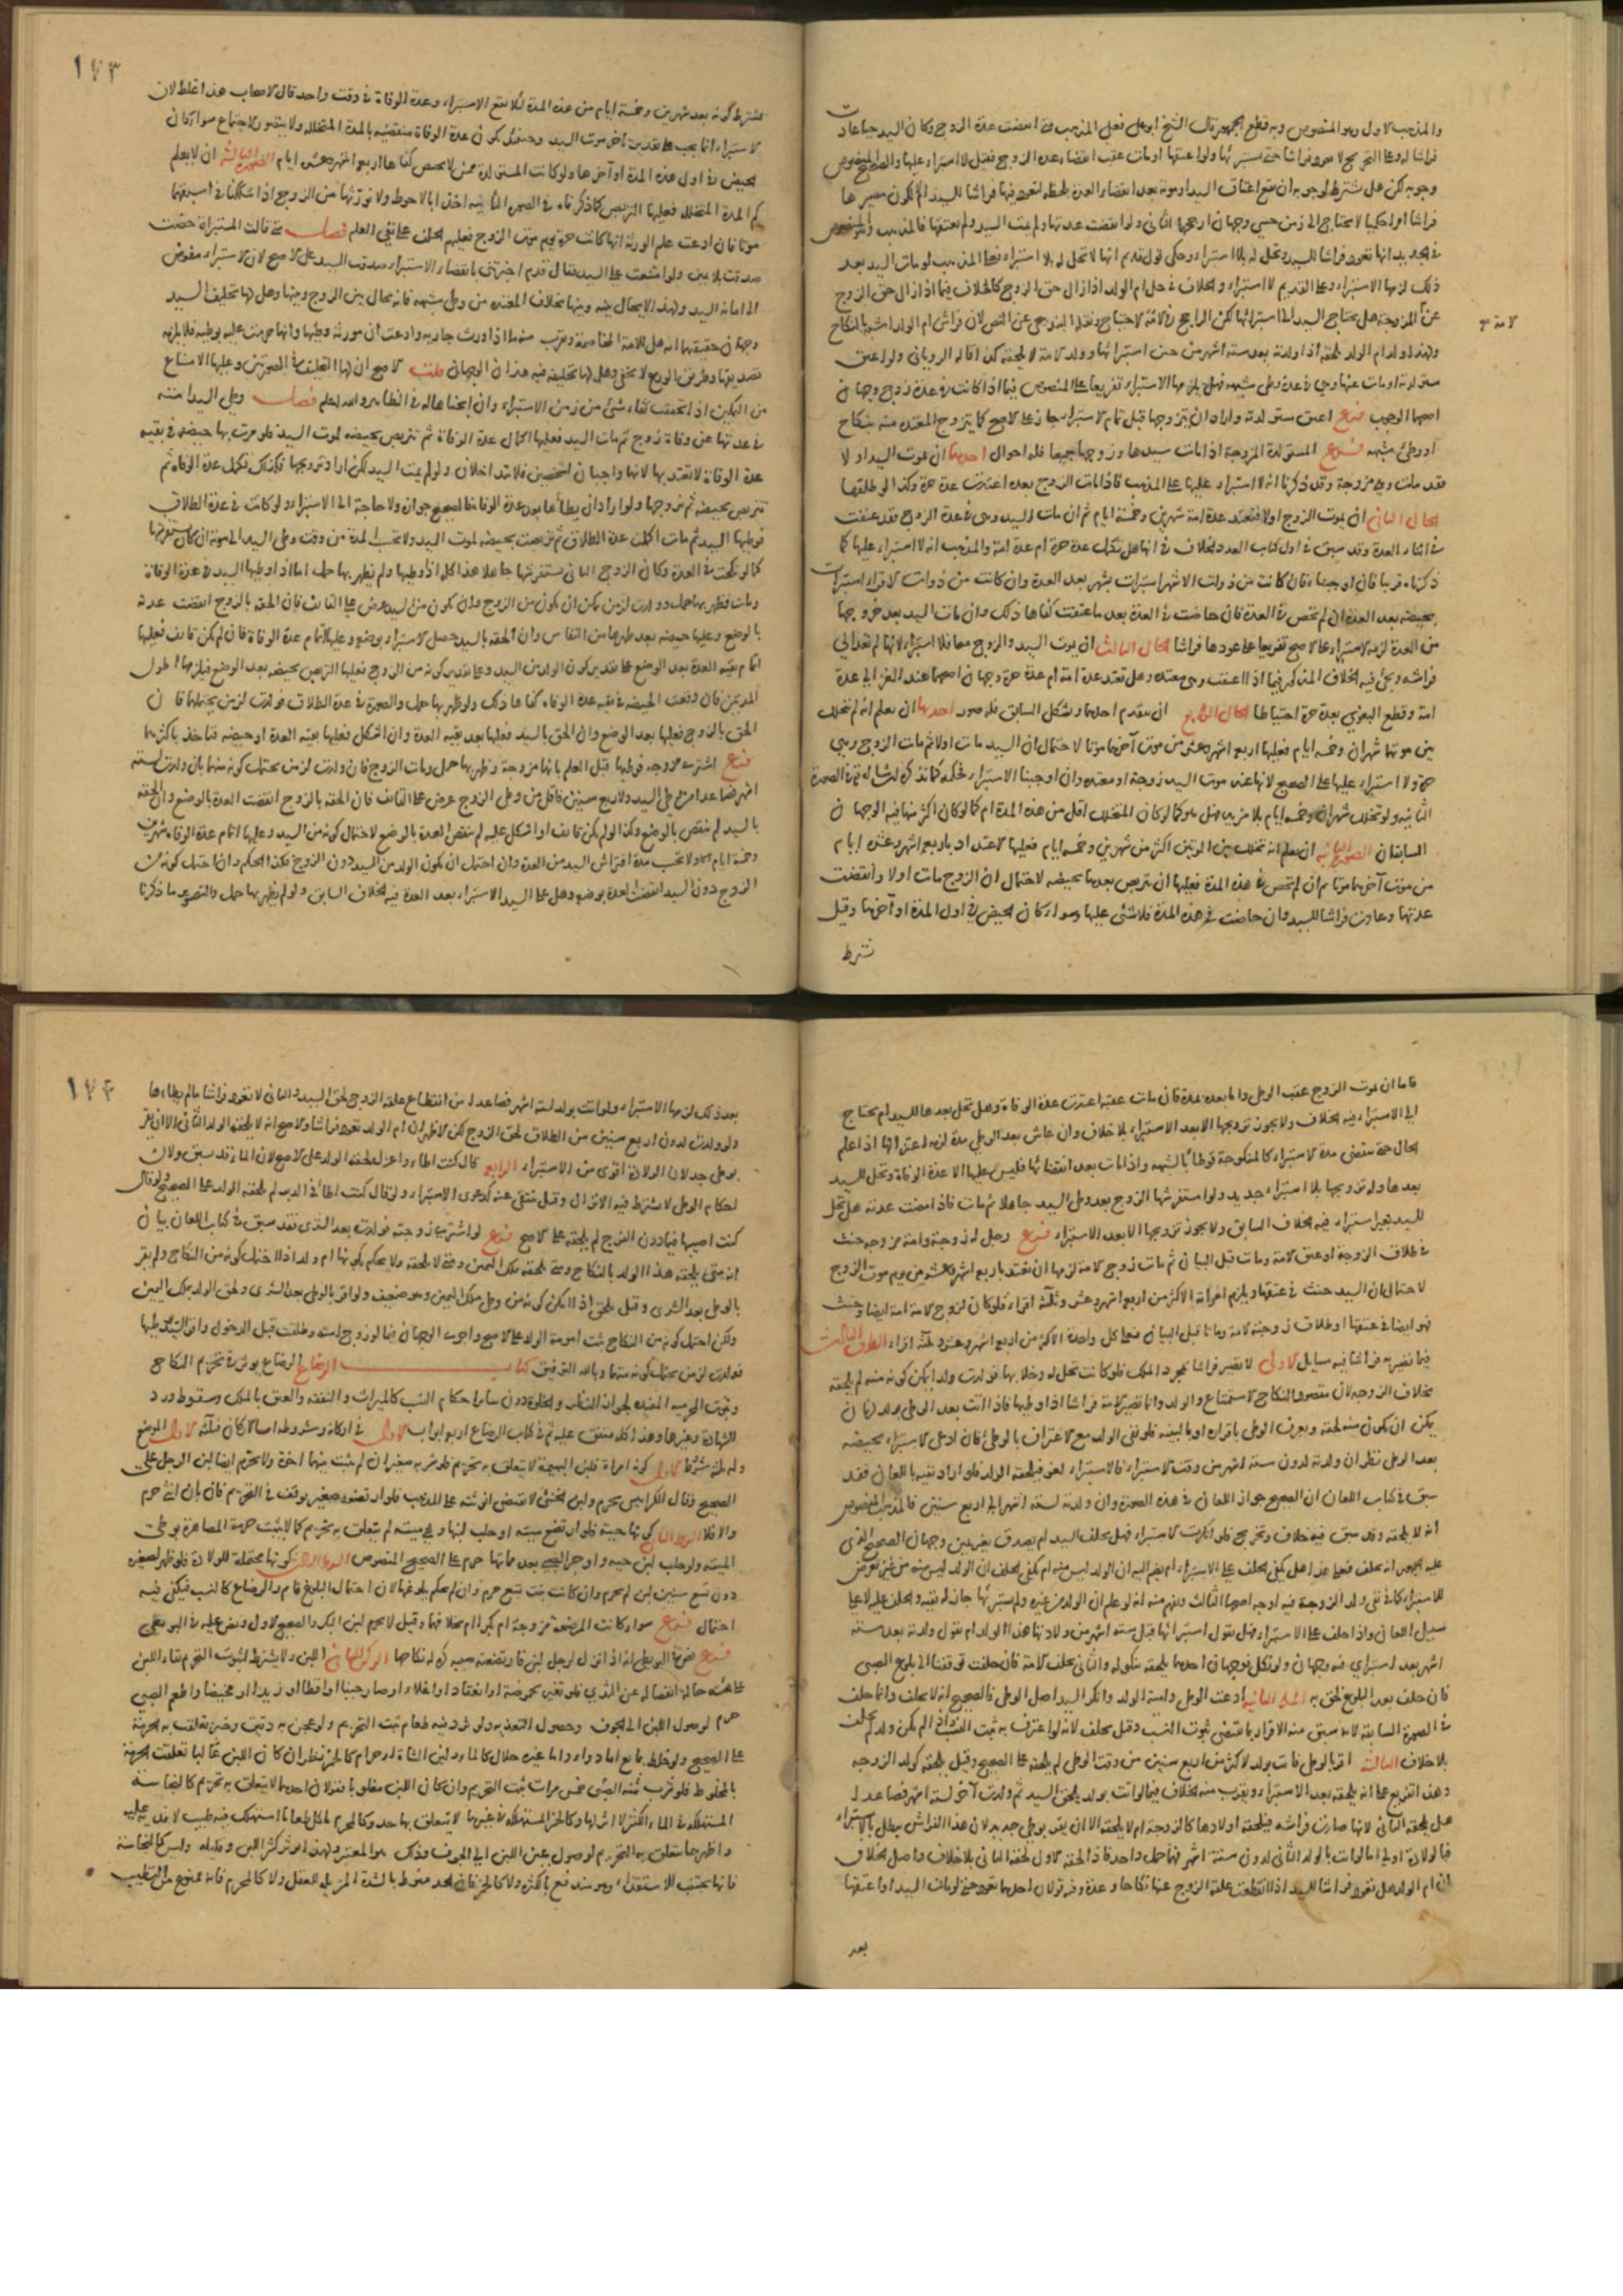 والمذهب الاول وهو المنصوص وبه قطع الجمهور قال الشيخ ابو علي فعلى المذهب متى انقضت عدة الزوج وكان السيد حيا عادت
فراشا له وعلى التخريج لا تعود فراشا حتى يستبرئها ولو اعتقها او مات عقب انقضاء عدة الزوج فقيل لا استبراء عليها والصحيح المنصوص
وجوبه لكن هل يشترط لوجوبه ان يقع اعتاق السيد او موته بعد انقضاء العدة بلحظة لتعود فيها فراشا للسيد ام لا لكون مصيرها
فراشا امرا حكميا لا يحتاج الى زمن حسي وجهان ارجحهما الثاني ولو انقضت عدتها ولم يمت السيد ولم يعتقها فالمذهب والمنصوص
في الجديد انها تعود فراشا للسيد وتحل له بلا استبراء وحكي قول قديم انها لا تحل له بلا استبراء فعلى المذهب لو مات السيد بعد
ذلك لزمها الاستبراء وعلى القديم لا استبراء والخلاف في حل ام الولد اذا زال حق الزوج كالخلاف فيما اذا زال حق الزوج
عن الامة المزوجة هل يحتاج السيد الى استبرائها لكن الراجح في الامة الاحتياج ونقله البندنيجي عن النص لان فراش ام الولد اشبه بالنكاح
ولهذا ولد ام الولد يلحقه اذا ولدته بعد ستة اشهر من حين استبرائها وولد الامة لا يلحقه كذا قاله الروياني ولو اعتق
مستولدته او مات عنها وهي في عدة وطئ شبهة فهل يلزمها الاستبراء تفريعا على المنصوص فيما اذا كانت في عدة زوج وجهان
اصحهما الوجوب فرع اعتق مستولدته واراد ان يتزوجها قبل تمام الاستبراء جاز على الاصح كما يتزوج المعتدة منه بنكاح
او وطئ شبهة فرع المستولدة المزوجة اذا مات سيدها وزوجها جميعا فله احوال احدها ان يموت السيد اولا
فقد مات وهي مزوجة وقد ذكرنا انه لا استبراء عليها على المذهب فاذا مات الزوج بعده اعتدت عدة حرة وكذا لو طلقها
الحال الثاني ان يموت الزوج اولا فتعتد عدة امة شهرين وخمسة ايام ثم ان مات السيد وهي في عدة الزوج فقد عتقت
في اثناء العدة وقد سبق في اول كتاب العدد الخلاف في انها هل تكمل عدة حرة ام عدة امة والمذهب انه لا استبراء عليها كما
ذكرناه قريبا فان اوجبناه فان كانت من ذوات الاشهر استبرات بشهر بعد العدة وان كانت من ذوات الاقراء استبرات
بحيضة بعد العدة ان لم تحض في العدة فان حاضت في العدة بعد ما عتقت كفاها ذلك وان مات السيد بعد خروجها
من العدة لزمها الاستبراء على الاصح تفريعا على عودها فراشا الحال الثالث ان يموت السيد والزوج معا فلا استبراء لانها لم تعد الى
فراشه ويجئ فيه الخلاف المذكور فيما اذا اعتقت وهي معتدة وهل تعتد عدة امة ام عدة حرة وجهان اصحهما عند الغزالي عدة
امة وقطع البغوي بعدة حرة احتياطا الحال الرابع ان يتقدم احدهما ويشكل السابق فله صور احدها ان يعلم انه لم يتخلل
بين موتهما شهران وخمسة ايام فعليها اربعة اشهر وعشر من موت آخرهما موتا لاحتمال ان السيد مات اولا ثم مات الزوج وهي
حرة ولا استبراء عليها على الصحيح لانها عند موت السيد زوجة او معتدة وان اوجبنا الاستبراء فحكمه كما نذكره ان شاء الله في الصورة
الثانية ولو تخلل شهران وخمسة ايام بلا مزيد فهل هو كما لو كان المتخلل اقل من هذه المدة ام كما لو كان اكثر منها فيه الوجهان
السابقان الصورة الثانية ان يعلم انه تخلل بين الموتين اكثر من شهرين وخمسة ايام فعليها الاعتداد باربعة اشهر وعشرة ايام
من موت آخرهما موتا ثم ان لم تحض في هذه المدة فعليها ان تتربص بعدها بحيضة لاحتمال ان الزوج مات اولا وانقضت
عدتها وعادت فراشا للسيد وان حاضت في هذه المدة فلا شئ عليها وسواء كان الحيض في اول المدة او آخرها وقيل
يشترط
لامة صح
١٧٣
يشترط كونه بعد شهرين وخمسة ايام من هذه المدة لئلا يقع الاستبراء وعدة الوفاة في وقت واحد قال الاصحاب هذا غلط لان
الاستبراء انما يجب على تقدير تأخر موت السيد وحينئذ يكون عدة الوفاة منقضية بالمدة المتخللة ولا يتصور الاجتماع سواء كان
الحيض في اول هذه المدة او آخرها ولو كانت المستولدة ممن لا تحيض كفاها اربعة اشهر وعشرة ايام الصورة الثالثة ان لا يعلم
كم المدة المتخللة فعليها التربص كما ذكرناه في الصورة الثانية اخذا بالاحوط ولا نورثها من الزوج اذا شككنا في اسبقهما
موتا فان ادعت علم الورثة انها كانت حرة يوم موت الزوج فعليهم الحلف على نفي العلم فصل متى قالت المستبراة حضت
صدقت بلا يمين ولو امتنعت على السيد فقال قد اخبرتني بانقضاء الاستبراء صدق السيد على الاصح لان الاستبراء مفوض
الى امانة السيد ولهذا لا يحال بينه وبينها بخلاف المعتدة من وطئ شبهة فانه يحال بين الزوج وبينها وهل لها تحليف السيد
وجهان حقيقتهما انه هل للامة المخاصمة ويقرب منه ما اذا ورث جارية وادعت ان مورثه وطئها وانها حرمت عليه بوطئه فلا يلزمه
تصديقها وطريق الورع لا يخفى وهل لها تحليفه فيه هذان الوجهان قلت الاصح ان لها التحليف في الصورتين وعليها الامتناع
من التمكين اذا تحققت بقاء شئ من زمن الاستبراء وان ابحناها له في الظاهر والله اعلم فصل وطئ السيد امته
في عدتها عن وفاة زوج ثم مات السيد فعليها اكمال عدة الوفاة ثم تتربص بحيضة لموت السيد فلو مرت بها حيضة في بقية
عدة الوفاة لا تعتد بها لانهما واجبان لشخصين فلا يتداخلان ولو لم يمت السيد لكن اراد تزويجها فكذلك تكمل عدة الوفاة ثم
تتربص بحيضة ثم يزوجها ولو اراد ان يطأها بعد عدة الوفاة فالصحيح جوازه ولا حاجة الى الاستبراء ولو كانت في عدة الطلاق
فوطئها السيد ثم مات اكملت عدة الطلاق ثم تربصت بحيضة لموت السيد ولا تحسب المدة من وقت وطئ السيد الى موته ان كان يستفرشها
كما لو نكحت في العدة وكان الزوج الثاني يستفرشها جاهلا هذا كله اذا وطئها ولم يظهر بها حمل اما اذا وطئها السيد في عدة الوفاة
ومات فظهر بها حمل وولدت لزمن يمكن ان يكون من الزوج وان يكون من السيد عرض على القائف فان الحقه بالزوج انقضت عدته
بالوضع وعليها حيضة بعد طهرها من النفاس وان الحقه بالسيد حصل الاستبراء بوضعه وعليها اتمام عدة الوفاة فان لم يكن قائف فعليها
اتمام بقية العدة بعد الوضع على تقدير كون الولد من السيد وعلى تقدير كونه من الزوج فعليها التربص بحيضة بعد الوضع فيلزمها اطول
المدتين فان وقعت الحيضة في بقية عدة الوفاة كفاها ذلك ولو ظهر بها حمل والصورة في عدة الطلاق فولدت لزمن يحتملهما فان
الحق بالزوج فعليها بعد الوضع وان الحق بالسيد فعليها بعد بقية العدة وان اشكل فعليها بقية العدة او حيضة فتاخذ باكثرهما
فرع اشترى مزوجة فوطئها قبل العلم بانها مزوجة وظهر بها حمل ومات الزوج فان ولدت لزمن يحتمل كونه منهما بان ولدت لستة
اشهر فصاعدا من وطئ السيد ولاربع سنين فاقل من وطئ الزوج عرض على القائف فان الحقه بالزوج انقضت العدة بالوضع وان الحقه
بالسيد لم تنقض بالوضع وكذا لو لم يكن قائف او اشكل عليه لم تنقض العدة بالوضع لاحتمال كونه من السيد وعليها اتمام عدة الوفاة شهرين
وخمسة ايام ولا تحسب مدة افتراش السيد من العدة وان احتمل ان يكون الولد من السيد دون الزوج فكذا الحكم وان احتمل كونه من
الزوج دون السيد انقضت العدة بوضعه وهل على السيد الاستبراء بعد العدة فيه الخلاف السابق ولو لم يظهر بها حمل والتصوير ما ذكرنا
فاما ان يموت الزوج عقب الوطئ واما بعده بمدة فان مات عقبه اعتدت عدة الوفاة وهل تحل بعدها للسيد ام يحتاج
الى الاستبراء فيه الخلاف ولا يجوز تزويجها الا بعد الاستبراء بلا خلاف وان عاش بعد الوطئ مدة لزمه اعتزالها اذا علم
الحال حتى تنقضي مدة الاستبراء كالمنكوحة توطأ بالشبهة واذا مات بعد انقضائها فليس عليها الا عدة الوفاة وتحل للسيد
بعدها وله تزويجها بلا استبراء جديد ولو استفرشها الزوج بعد وطئ السيد جاهلا ثم مات فاذا مضت عدته هل تحل
للسيد بغير استبراء فيه الخلاف السابق ولا يجوز تزويجها الا بعد الاستبراء فرع رجل له زوجة وامة مزوجة حنث
في طلاق الزوجة او عتق الامة ومات قبل البيان ثم مات زوج الامة لزمها ان تعتد باربعة اشهر وعشر من يوم موت الزوج
لاحتمال ان السيد حنث في عتقها ويلزم امرأته الاكثر من اربعة اشهر وعشر وثلثة اقراء فلو كان لزوج الامة امة ايضا وحنث
هو ايضا في عتقها او طلاق زوجته الامة وماتا قبل البيان فعلى كل واحدة الاكثر من اربعة اشهر وعشر وثلثة اقراء الطرف الثالث
فيما تصير به فراشا فيه مسايل الاولى لا تصير فراشا بمجرد الملك فلو كانت تحل له وخلا بها فولدت ولدا يمكن كونه منه لم يلحقه
بخلاف الزوجة لان مقصود النكاح الاستمتاع والولد وانما تصير الامة فراشا اذا وطئها فاذا اتت بعد الوطئ بولد لزمان
يمكن ان يكون منه لحقه ويعرف الوطئ باقراره او بالبينة فلو نفى الولد مع الاعتراف بالوطئ فان ادعى الاستبراء بحيضة
بعد الوطئ نظر ان ولدته لدون ستة اشهر من وقت الاستبراء فالاستبراء لغو فيلحقه الولد فلو اراد نفيه باللعان فقد
سبق في كتاب اللعان ان الصحيح جواز اللعان في هذه الصورة وان ولدته لستة اشهر الى اربع سنين فالمذهب المنصوص
انه لا يلحقه وقد سبق فيه خلاف وتخريج فلو انكرت الاستبراء فهل يحلف السيد ام يصدق بغير يمين وجهان الصحيح الذي
عليه الجمهور انه يحلف فعلى هذا هل يكفي الحلف على الاستبراء ام يضم اليه ان الولد ليس منه ام يكفي الحلف ان الولد ليس منه من غير تعرض
للاستبراء كما في نفي ولد الزوجة فيه اوجه اصحها الثالث ويفهم منه انه لو علم ان الولد من غيره ولم يستبرئها جاز له نفيه والحلف عليه لا على
سبيل اللعان واذا حلف على الاستبراء فهل يقول استبرأتها قبل ستة اشهر من ولادتها هذا الولد ام يقول ولدته بعد ستة
اشهر بعد استبرائي فيه وجهان ولو نكل فوجهان احدهما يلحقه بنكوله والثاني يحلف الامة فان حلفت لحقه وان نكلت توقفنا الى بلوغ الصبي
فان حلف بعد البلوغ لحق به المسئلة الثانية ادعت الوطئ وامية الولد وانكر السيد اصل الوطئ فالصحيح انه لا يحلف وانما حلف
في الصورة السابقة لانه سبق منه الاقرار بما يقتضي ثبوت النسب وقيل يحلف لانه لو اعترف به ثبت النسب واذا لم يكن ولد لم يحلف
بلا خلاف الثالثة اقر بالوطئ فاتت بولد لاكثر من اربع سنين من وقت الوطئ لم يلحقه على الصحيح وقيل يلحقه كولد الزوجة
وهذا تفريع على انه يلحقه بعد الاستبراء ويقرب منه الخلاف فيما لو اتت بولد يلحق السيد ثم ولدت آخر لستة اشهر فصاعدا
هل يلحقه الثاني لانها صارت فراشه فيلحقه اولادها كالزوجة ام لا يلحقه الا ان يقر بوطئ جديد لان هذا الفراش يبطل بالاستبراء
فبالولادة اولى اما لو اتت بالولد الثاني لدون ستة اشهر فهما حمل واحد فاذا لحقه الاول لحقه الثاني بلا خلاف واصل الخلاف
ان ام الولد هل تعود فراشا للسيد اذا انقطعت علقة الزوج عنها نكاحا وعدة وفيه قولان احدهما تعود حتى لو مات السيد او اعتقها
بعد
١٧٤
بعد ذلك لزمها الاستبراء ولو اتت بولد لستة اشهر فصاعدا من انقطاع علقة الزوج لحق السيد والثاني لا تعود فراشا ما لم يطأها
ولو ولدت لدون اربع سنين من الطلاق لحق الزوج لكن الاظهر ان ام الولد تعود فراشا والاصح انه لا يلحقه الولد الثاني الا ان يقر
بوطئ جديد لان الولادة اقوى من الاستبراء الرابعة قال كنت اطأ واعزل لحقه الولد على الاصح لان الماء قد يسبق ولان
احكام الوطئ لا يشترط فيه الانزال وقيل ينتفي عنه كدعوى الاستبراء ولو قال كنت اطأ في الدبر لم يلحقه الولد على الصحيح ولو قال
كنت اصيبها فيما دون الفرج لم يلحقه على الاصح فرع لو اشترى زوجته فولدت بعد الشرى فقد سبق في كتاب اللعان بيان
انه متى يلحقه هذا الولد بالنكاح ومتى يلحقه بملك اليمين ومتى لا يلحقه ولا يحكم بكونها ام ولد اذا احتمل كونه من النكاح ولم يقر
بالوطئ بعد الشرى وقيل يلحق اذا امكن كونه من وطئ ملك اليمين وهو ضعيف ولو اقر بالوطئ بعد الشرى ولحق الولد بملك اليمين
ولكن احتمل كونه من النكاح ثبتت امومة الولد على الاصح واجري الوجهان فيما لو زوج امته وطلقت قبل الدخول واقر السيد بوطئها
فولدت لزمن يحتمل كونه منهما وبالله التوفيق كتاب الرضاع الرضاع يؤثر في تحريم النكاح
وثبوت المحرمية المفيدة لجواز النظر والخلوة دون سائر احكام النسب كالميراث والنفقة والعتق بالملك وسقوط رد
الشهادة وغيرها وهذا كله متفق عليه ثم في كتاب الرضاع اربعة ابواب الاول في اركانه وشروطه اما الاركان فثلثة الاول المرضع
وله ثلثة شروط الاول كونه امرأة فلبن البهيمة لا يتعلق به تحريم فلو شربه صغيران لم يثبت بينهما اخوة ولا يحرم ايضا لبن الرجل على
الصحيح وقال الكرابيسي يحرم ولبن الخنثى لا يقتضي انوثته على المذهب فلو ارتضعه صغير توقف في التحريم فان بان انثى حرم
والا فلا الشرط الثاني كونها حية فلو ارتضع ميتة او حلب لبنها وهي ميتة لم يتعلق به تحريم كما لا تثبت حرمة المصاهرة بوطئ
الميتة ولو حلب لبن حية واوجر الصبي بعد موتها حرم على الصحيح المنصوص الشرط الثالث كونها محتملة للولادة فلو ظهر لصغيرة
دون تسع سنين لبن لم يحرم وان كانت بنت تسع حرم وان لم نحكم ببلوغها لان احتمال البلوغ قائم والرضاع كالنسب فيكفي فيه
احتمال فرع سواء كانت المرضعة مزوجة ام بكرا ام بخلافهما وقيل لا يحرم لبن البكر والصحيح الاول ونص عليه في البويطي
فرع نص في البويطي انه اذا نزل لرجل لبن فارتضعته صبية كره له نكاحها الركن الثاني اللبن ولا يشترط لثبوت التحريم بقاء اللبن
على هيئته حالة انفصاله عن الثدي فلو تغير بحموضة او انعقاد او اغلاء او صار جبنا او اقطا او زبدا او مخيضا واطعم الصبي
حرم لوصول اللبن الى الجوف وحصول التغذية ولو ثرد فيه طعام ثبت التحريم ولو عجن به دقيق وخبز تعلقت به الحرمة
على الصحيح ولو خلط بمائع اما دواء واما غيره حلال كالماء ولبن الشاة او حرام كالخمر نظر ان كان اللبن غالبا تعلقت الحرمة
بالمخلوط فلو شرب منه الصبي خمس مرات ثبت التحريم وان كان اللبن مغلوبا فقولان احدهما لا يتعلق به تحريم كالنجاسة
المستهلكة في الماء الكثير لا اثر لها وكالخمر المستهلكة في غيرها لا يتعلق بها حد وكالمحرم ياكل طعاما استهلك فيه طيب لا فدية عليه
واظهرهما يتعلق به التحريم لوصول عين اللبن الى الجوف وذلك هو المعتبر ولهذا يؤثر كثير اللبن وقليله وليس كالنجاسة
فانها تجتنب للاستقذار وهو مندفع بالكثرة ولا كالخمر فان الحد منوط بالشدة المزيلة للعقل ولا كالمحرم فانه ممنوع من التطيب